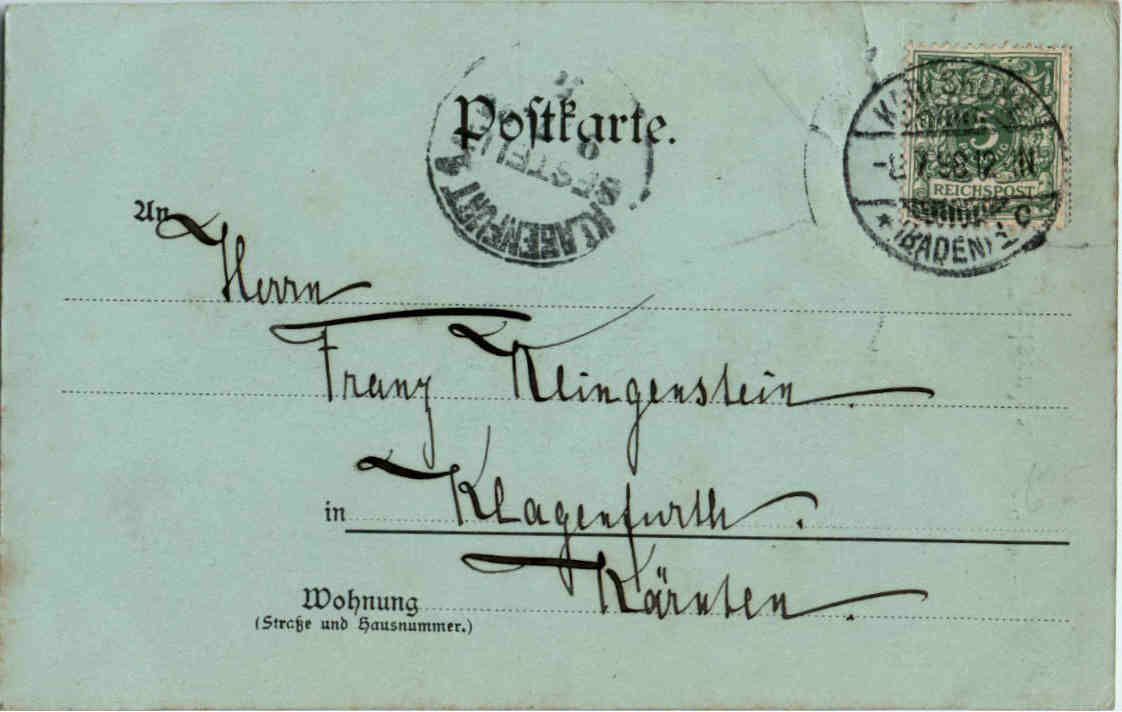 Postkarte.
KLAGENFURT
BESTELLT
KARLSRUHE
98 12-1N
(BADEN) 1 C
5
REICHSPOST
An
Herrn
Franz Klingenstein
in Klagenfurth.
Wohnung Kärnten.
(Straße und Hausnummer.)